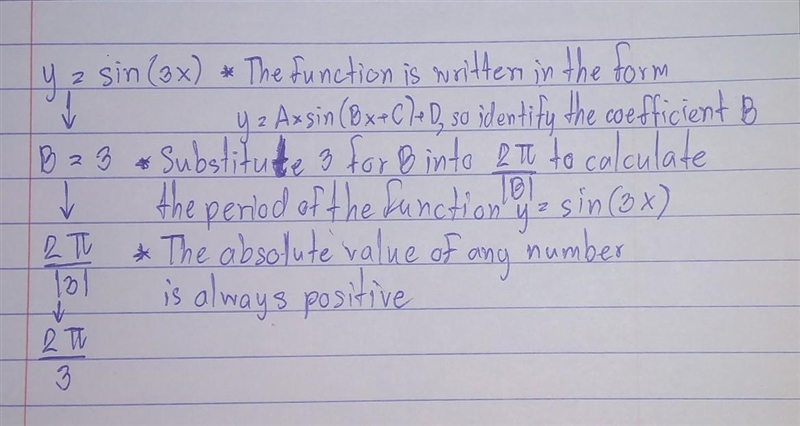 y = sin(3x) * The function is written in the form
↓ y = A×sin(Bx+C)+D, so identify the coefficient B
B = 3 * Substitute 3 for B into 2π/|B| to calculate
↓ the period of the function y = sin(3x)
2π/|3| * The absolute value of any number
↓ is always positive
2π/3